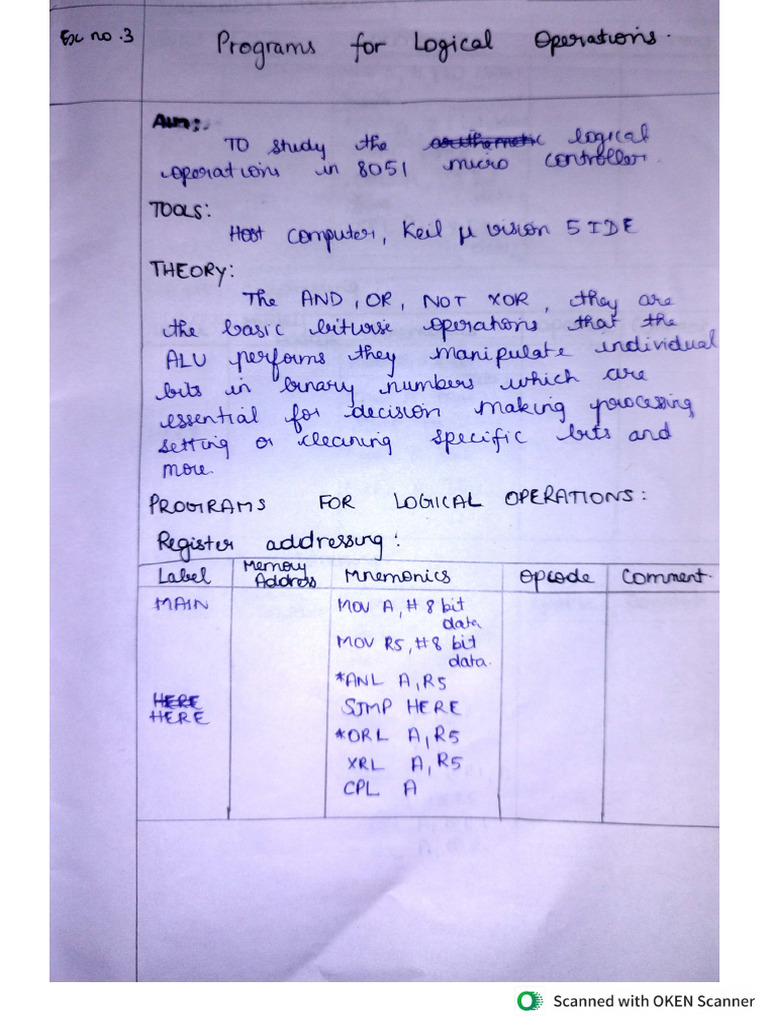 Ex no.3
Programs for Logical Operations.
Aim:
To study the arithmetic logical
operations in 8051 micro controller.
TOOLS:
Host computer, Keil µ vision 5 IDE
THEORY:
The AND, OR, NOT XOR, they are
the basic bitwise operations that the
ALU performs they manipulate individual
bits in binary numbers which are
essential for decision making processing,
setting or cleaning specific bits and
more.
PROGRAMS FOR LOGICAL OPERATIONS:
Register addressing:
Label Memory Address Mnemonics Opcode Comment.
MAIN MOV A, # 8 bit
data
MOV R5, #8 bit
data.
*ANL A, R5
HERE
HERE SJMP HERE
*ORL A, R5
XRL A, R5
CPL A
Scanned with OKEN Scanner